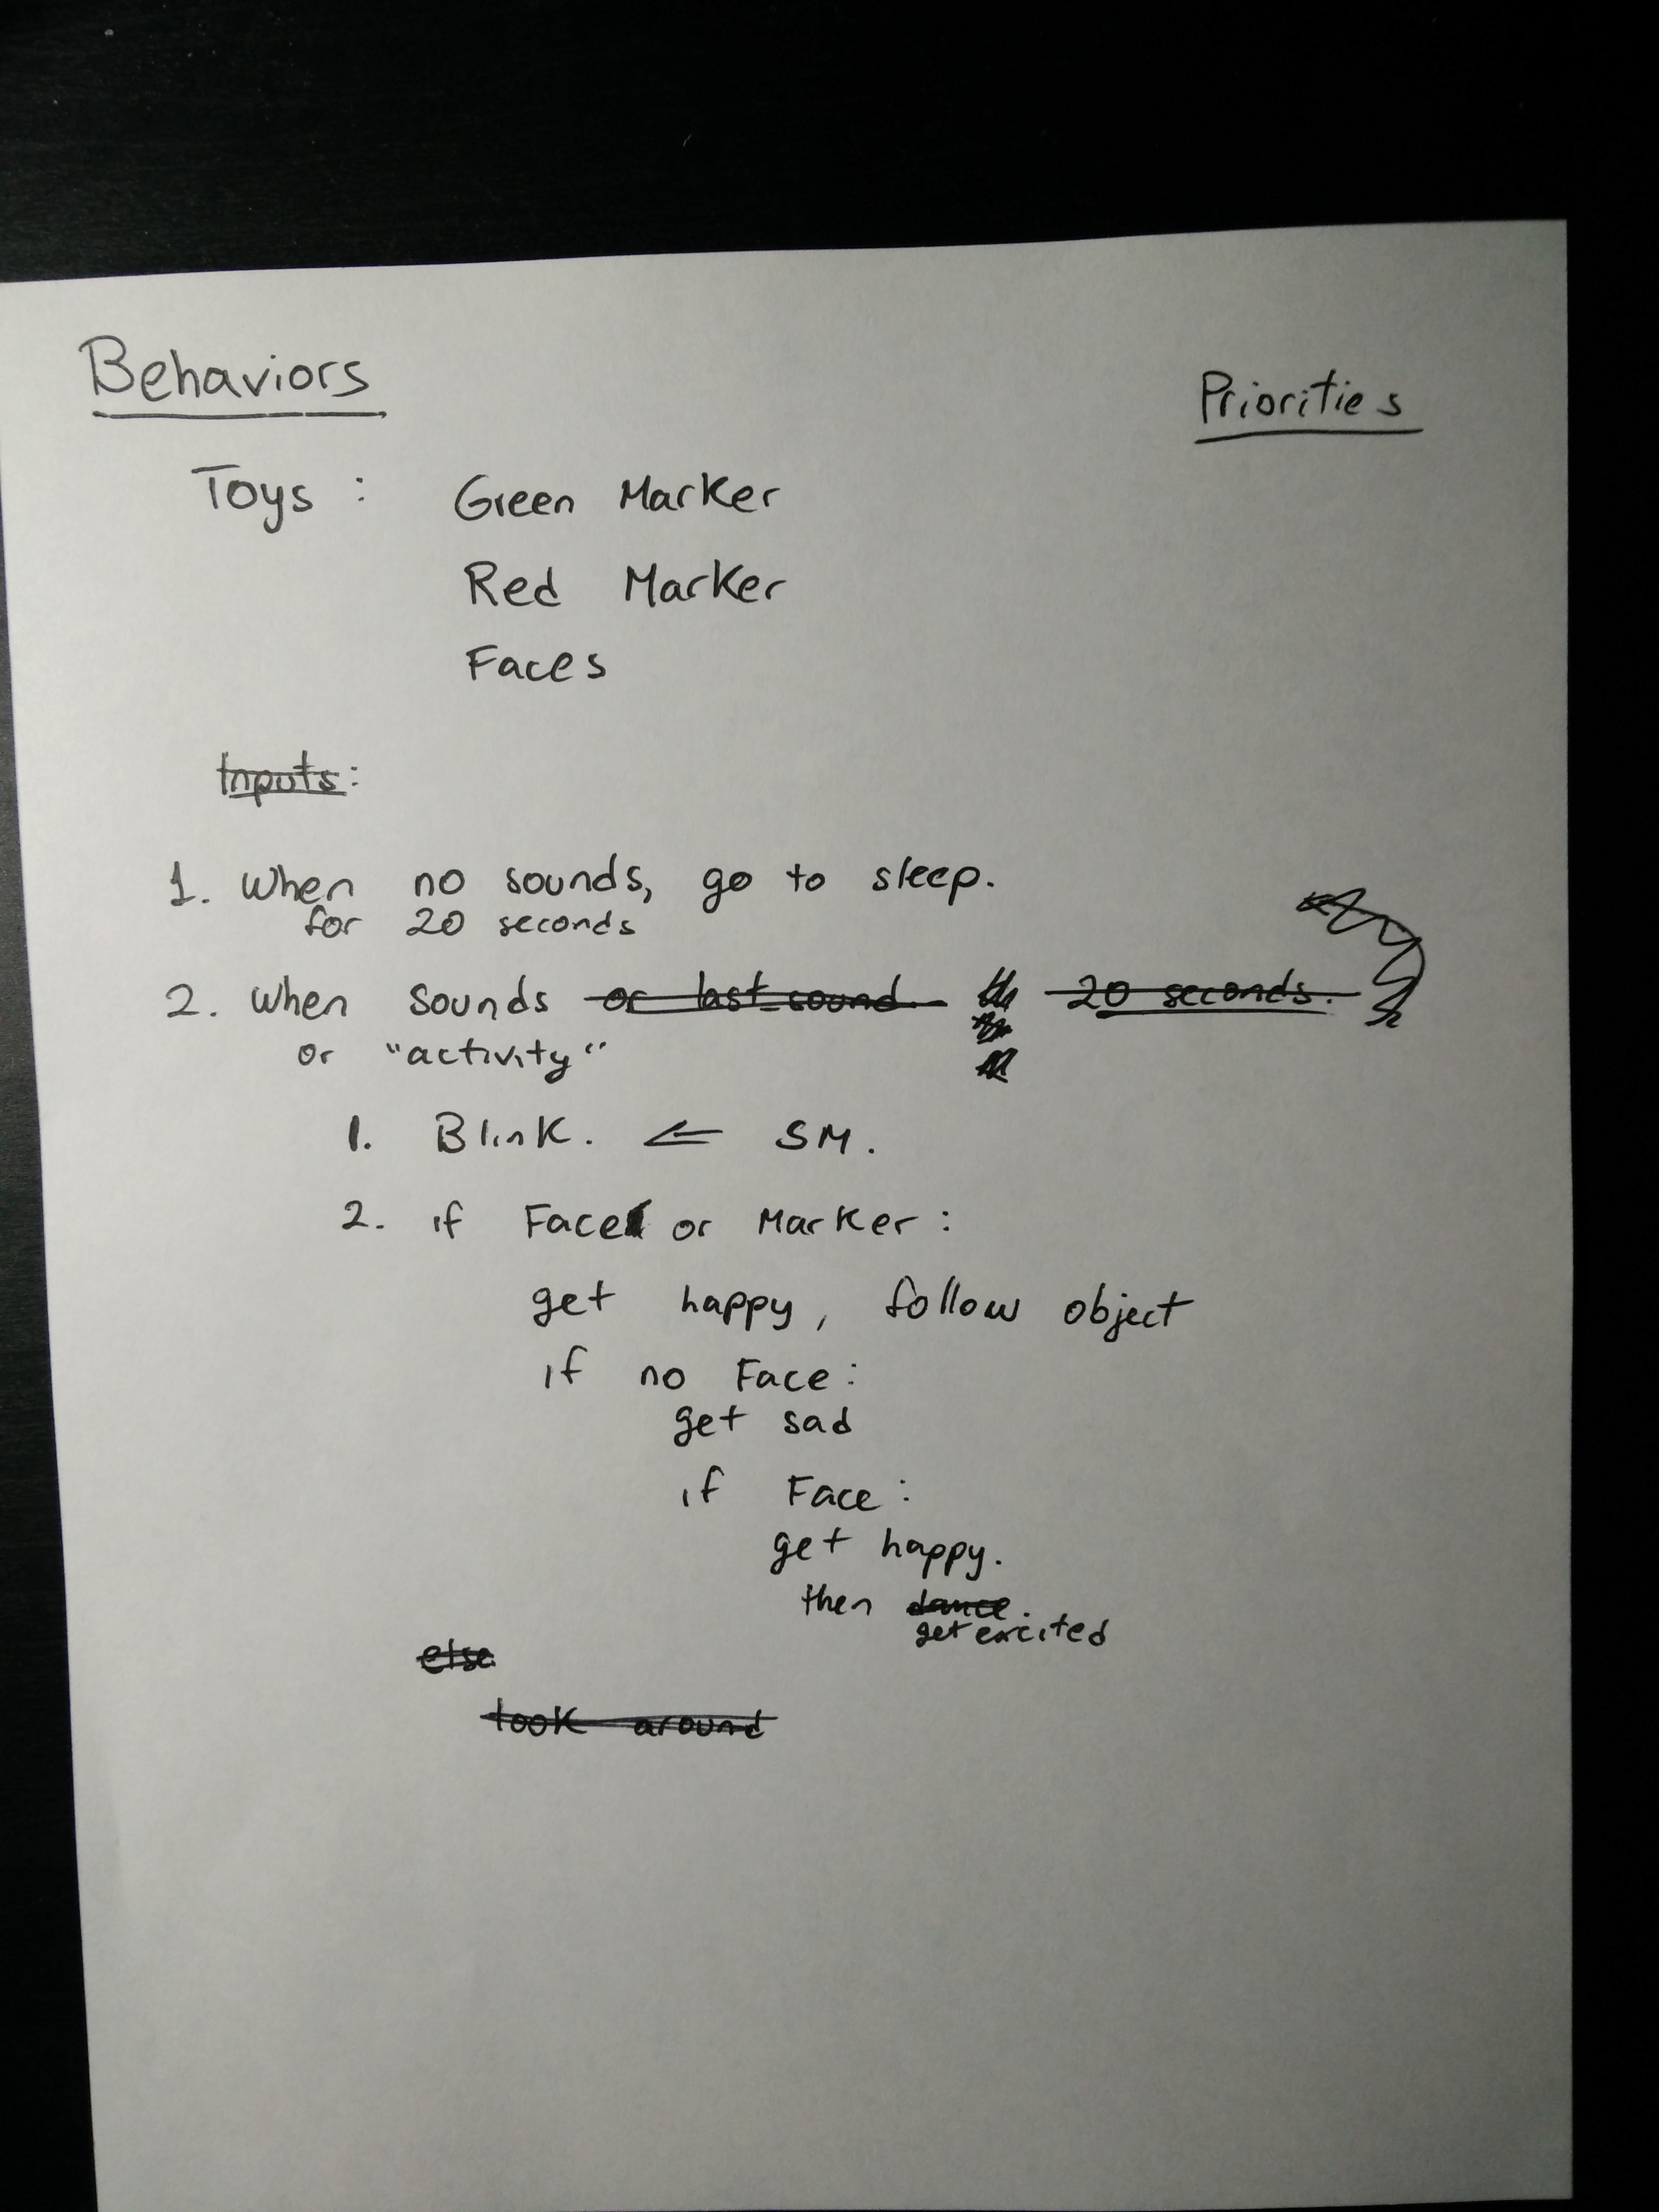 Behaviors
Priorities
Toys : Green Marker
Red Marker
Faces
Inputs:
1. When no sounds, go to sleep.
for 20 seconds
2. When sounds or last sound 20 seconds.
or "activity"
1. Blink. ⇐ SM.
2. if Face or Marker :
get happy, follow object
if no Face :
get sad
if Face :
get happy.
then dance.
get excited
else
look around